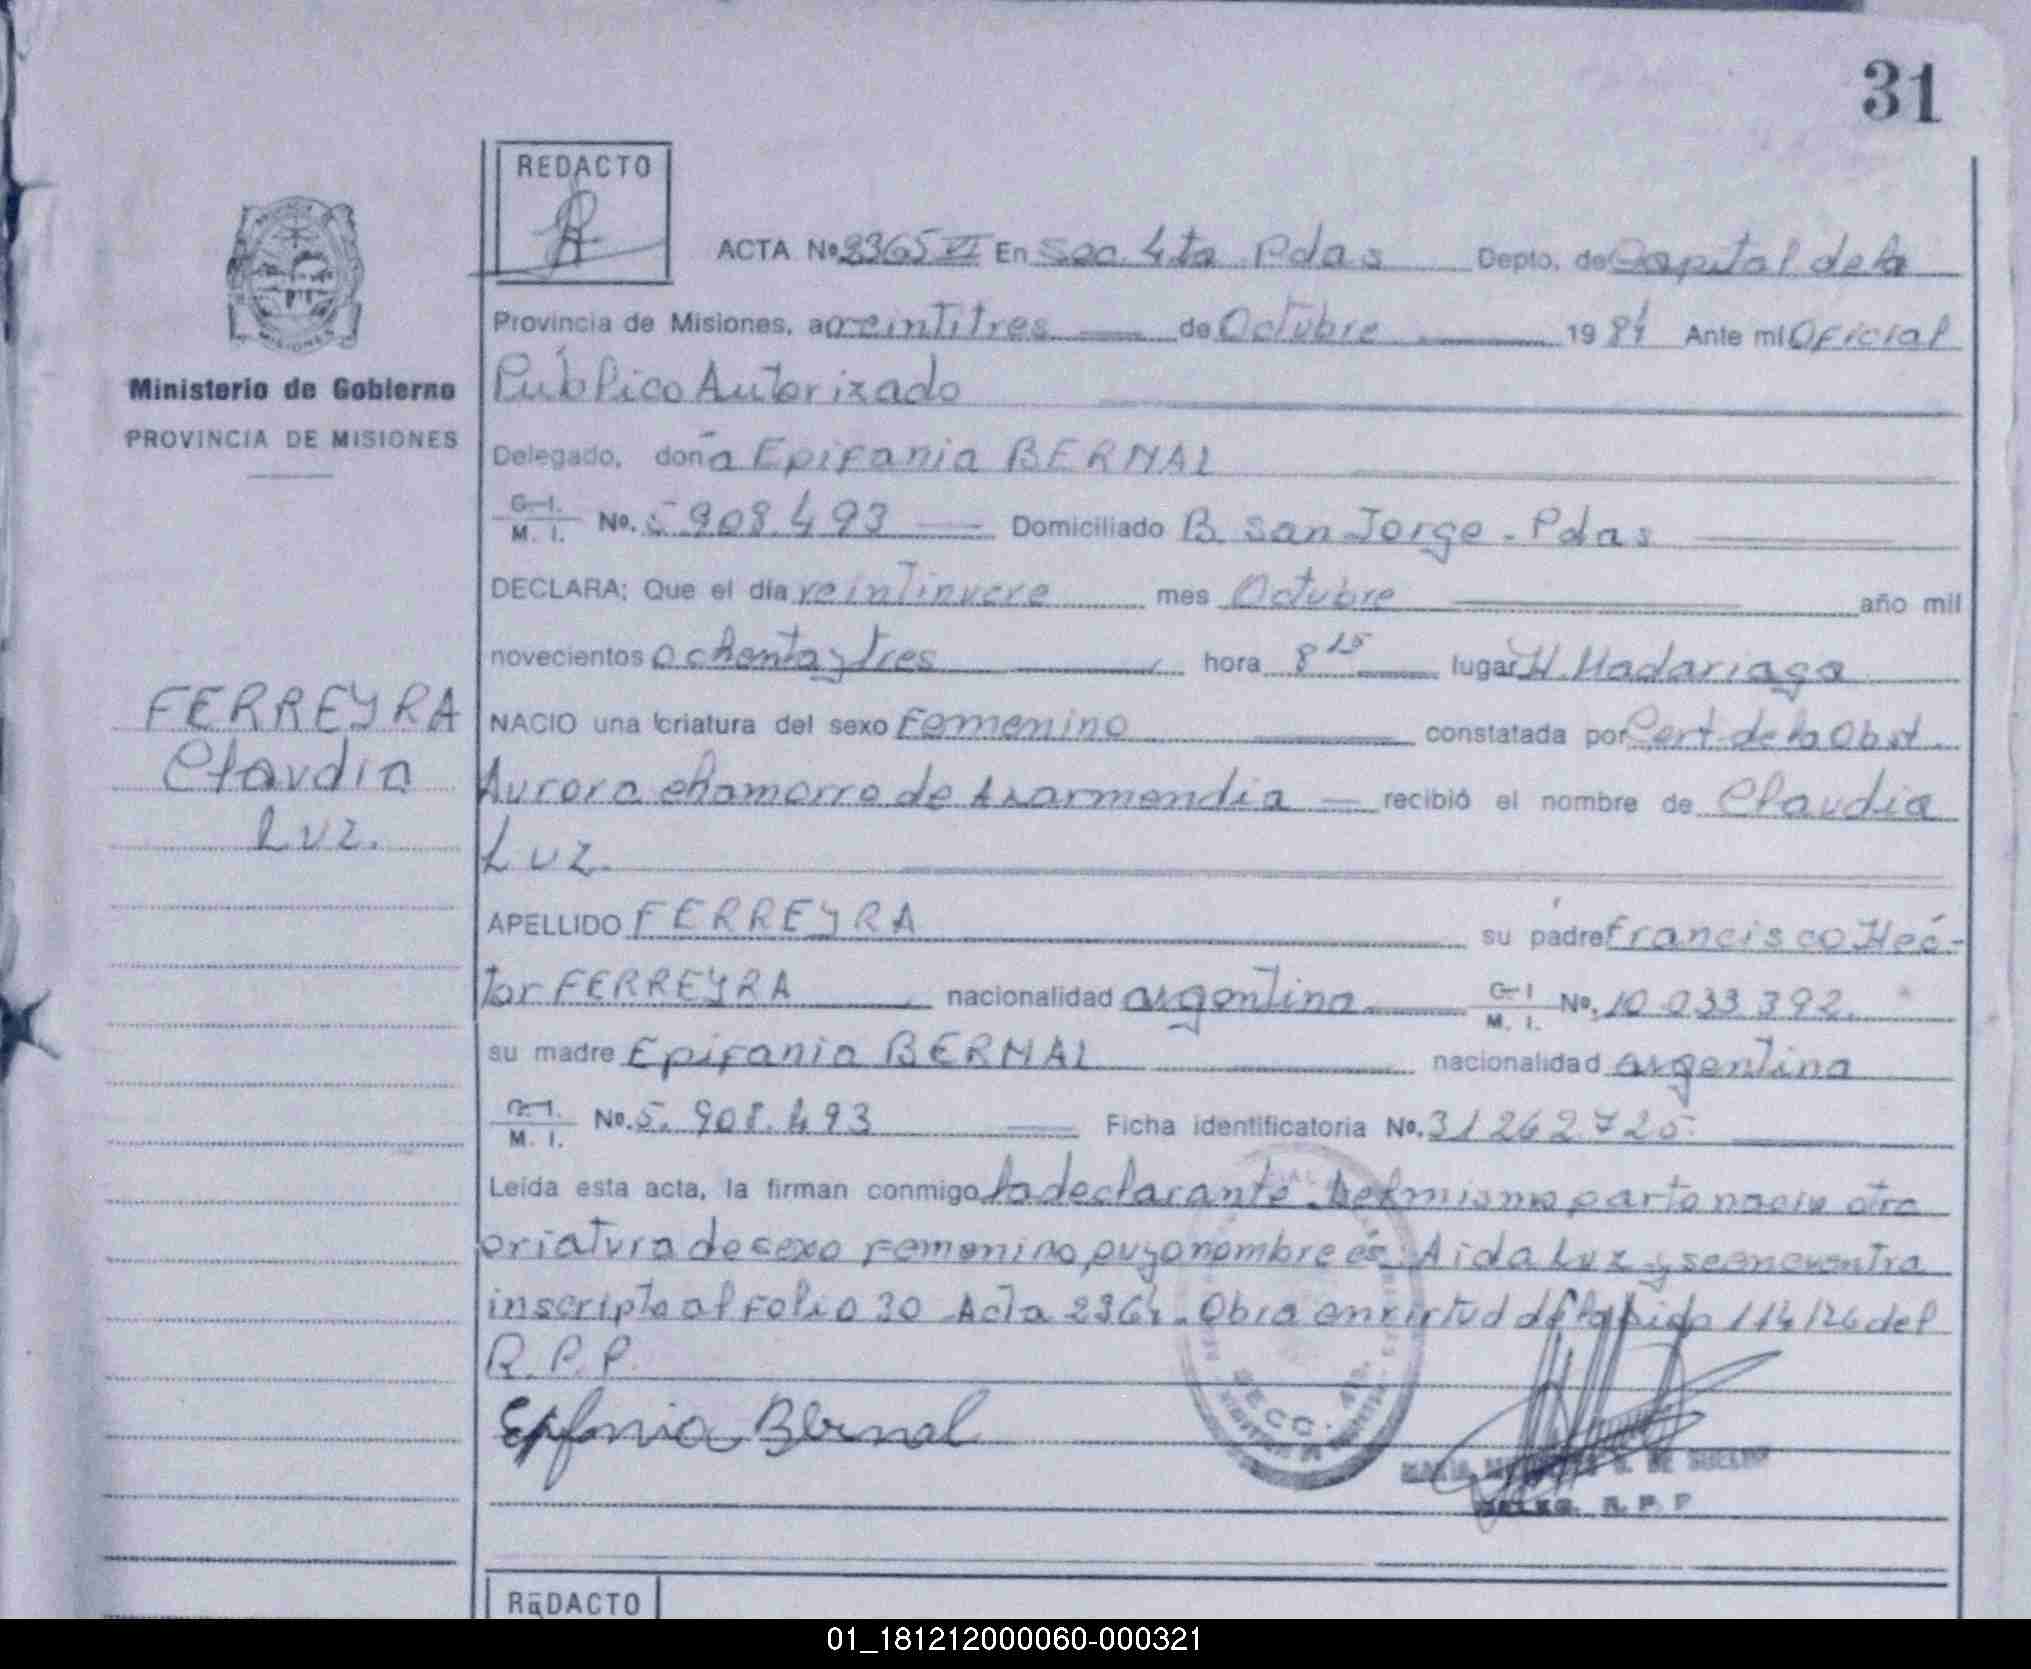 31
REDACTO
ACTA Nº 2365 VI En Sec. 4ta Pdas Depto. de Capital de la
Provincia de Misiones, a veintitres de Octubre 1984 Ante mi Oficial
Público Autorizado
Ministerio de Gobierno
PROVINCIA DE MISIONES
Delegado, doña Epifania BERNAL
C. I.
M. I. No. 5.908.493 Domiciliado B. San Jorge - Pdas
DECLARA; Que el día veintinueve mes Octubre año mil
novecientos ochenta y tres hora 8 15 lugar H. Madariaga
FERREYRA
Claudia
Luz.
NACIO una criatura del sexo Femenino constatada por Cert. de la Obst.
Aurora Chamorro de Azarmendia recibió el nombre de Claudia
Luz
APELLIDO FERREYRA su padre Francisco Héc-
tor FERREYRA nacionalidad argentina C. I
M. I. Nº. 10.033.392.
su madre Epifania BERNAL nacionalidad argentina
C. I.
M. I. No. 5.908.493 Ficha identificatoria No. 31262725
Leída esta acta, la firman conmigo la declarante. Del mismo parto nacio otra
criatura de sexo Femenino, cuyo nombre es: Aida Luz y se encuentra
inscripta al Folio 30 Acta 2364. Obra en virtud del 114/26 del
R.P.P.
Epifania Bernal
SECC. 4ta.
DELEG. R. P. P
REDACTO
01_181212000060-000321